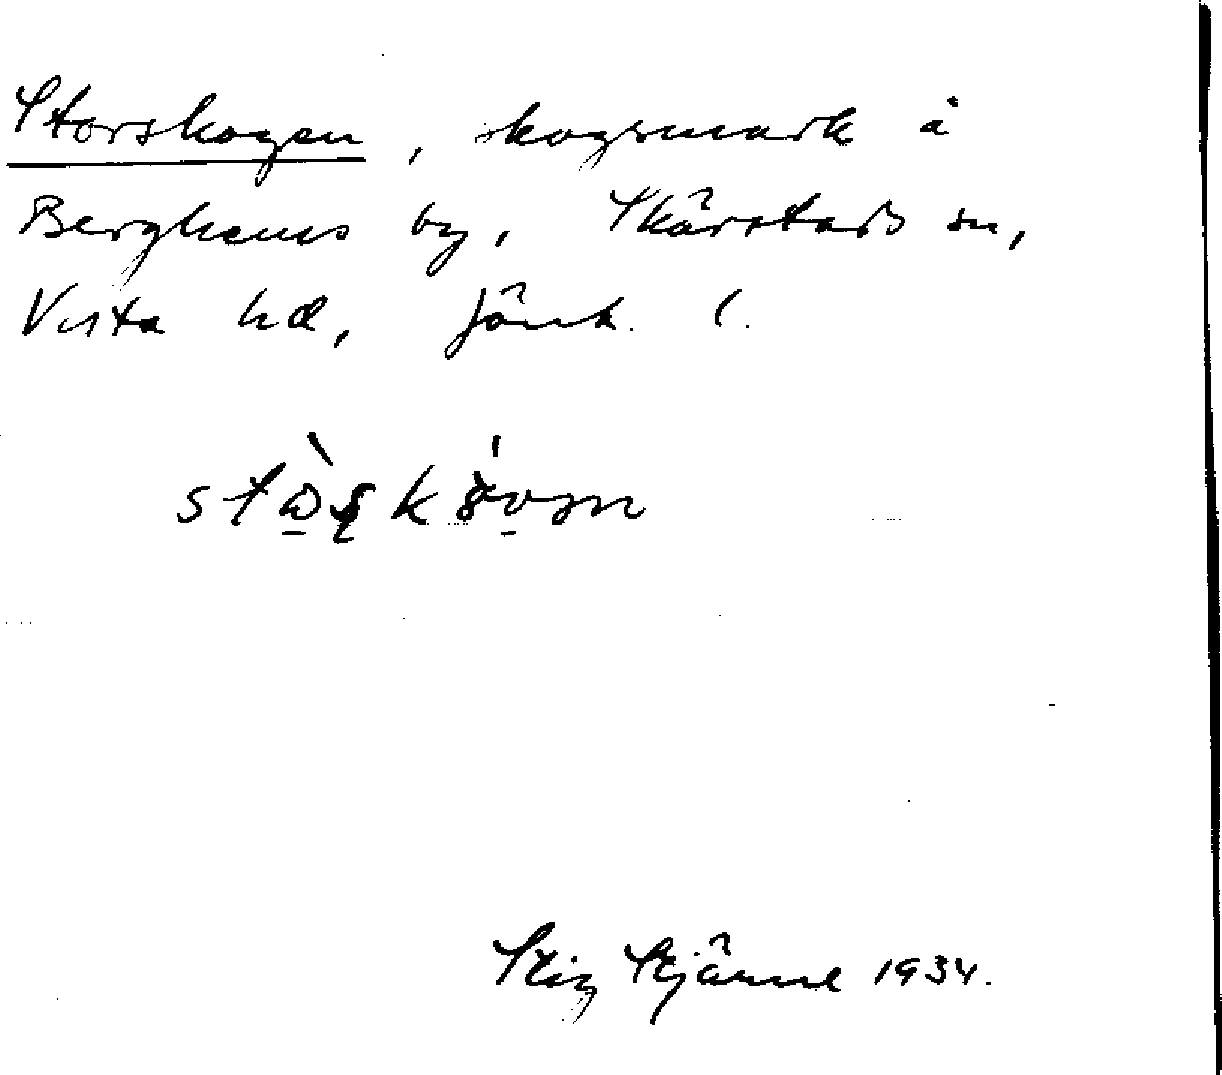 Storskogen, skogsmark å
Berghems by, Skärstads sn,
Vista hd, Jönk. l.
Stig Stjärne 1934.